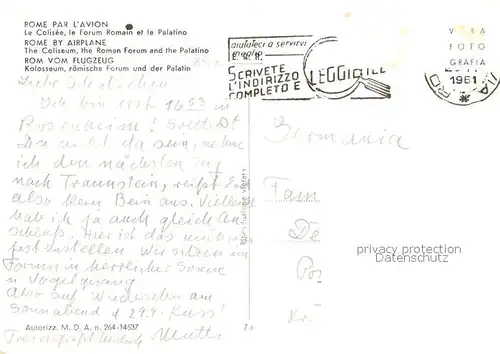 ROME PAR L'AVION
Le Colisée, le Forum Romain et le Palatino
ROME BY AIRPLANE
The Coliseum, the Roman Forum and the Palatino
ROM VOM FLUGZEUG
Kolosseum, römische Forum und der Palatin
aiutateci a servirvi
meglio
SCRIVETE
L'INDIRIZZO
COMPLETO E
LEGGIBILE
VERA
FOTO
GRAFIA
1961
Liebe
Ich bin erst 16 53 in
Rosenheim! Solltest
Du nicht da sein, nehme
ich den nächsten Zug
nach Traunstein, reißt
also kein Bein aus. Vielleicht
hab ich ja auch gleich An-
schluß. Hier ist das nicht
festzustellen. Wir sitzen im
Forum in herrlicher Sonne
u Vogelgesang
Also auf Wiedersehen am
Sonnabend d 29.4. Kuss!
Mutti
Germania
Fam
privacy protection
ANSICHTSKARTEN-CENTER.DE
Autorizz. M. D. A. n. 264-14537
7